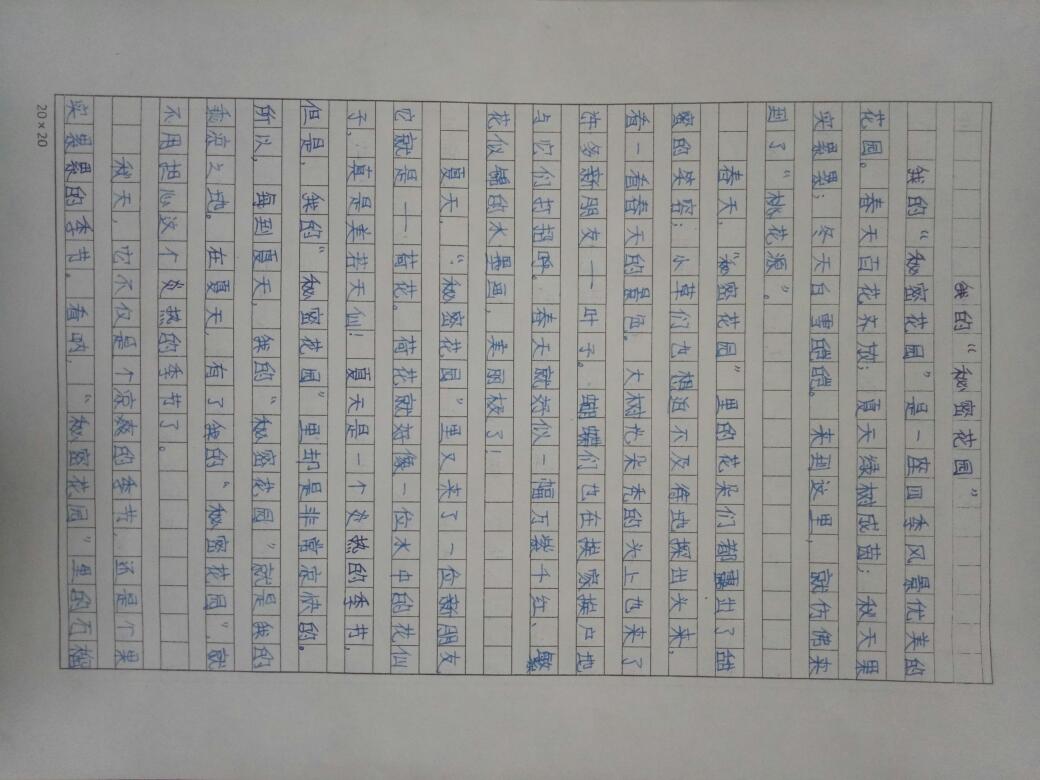 我的“秘密花园”
我的“秘密花园”是一座四季风景优美的
花园。春天百花齐放；夏天绿树成茵；秋天果
实累累；冬天白雪皑皑。来到这里，就仿佛来
到了“桃花源”。
春天，“秘密花园”里的花朵们都露出了甜
蜜的笑容；小草们也想迫不及待地探出头来，
看一看春天的景色。大树光朵秃的头上也来了
许多新朋友——叶子。蝴蝶们也在挨家挨户地
与它们打招呼。春天就好似一幅万紫千红、繁
花似锦的水墨画，美丽极了！
夏天，“秘密花园”里又来了一位新朋友
它就是——荷花。荷花就好像一位水中的花仙
子，真是美若天仙！夏天是一个炎热的季节，
但是，我的“秘密花园”里却是非常凉快的。
所以，每到夏天，我的“秘密花园”就是我的
乘凉之地。在夏天，有了我的“秘密花园”，就
不用担心这个炎热的季节了。
秋天，它不仅是个凉爽的季节，还是个果
实累累的季节。看呐，“秘密花园”里的石榴
20×20